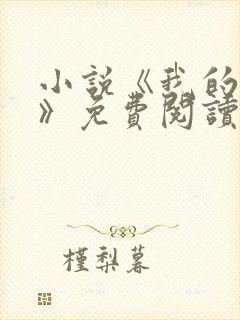 小説《我的
》免費閱讀
槿梨暮